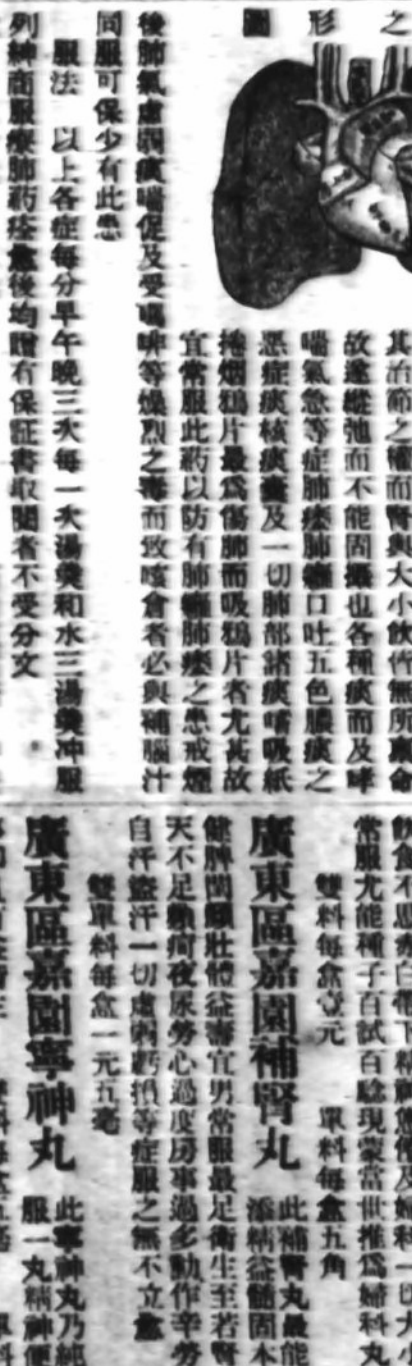 之
形
圖
其治節之權而腎與大小飲作無所稟命
故遂縱弛而不能固攝也各種痰而及哮
喘氣急等症肺痿肺癰口吐五色膿痰之
惡症痰核痰癧及一切肺部諸痰喘吸紙
捲烟鴉片最為傷肺而吸鴉片者尤甚故
宜常服此葯以防有肺癰肺痿之患戒煙
後肺氣虛弱痰喘促及受嗎啡等燥烈之毒而致咳會者必與補腦汁
同服可保少有此患
服法 以上各症每分早午晚三次每一次湯羹和水三湯羹冲服
列紳商服療肺葯痊愈後均贈有保証書取閱者不受分文
飲食不思赤白帶下精神倦怠及婦科一切大小
常服尤能種子百試百驗現蒙當世推為婦科丸
雙料每盒壹元 單料每盒五角
廣東區嘉園補腎丸
此補腎丸最能
添精益髓固本
健脾開胃壯體益壽宜男常服最足衛生至若腎
天不足 夜尿勞心過度房事過多動作辛勞
自汗盜汗一切虛弱虧損等症服之無不立愈
雙單料每盒一元五毫
廣東區嘉園寧神丸
此寧神丸乃純
服一丸精神便